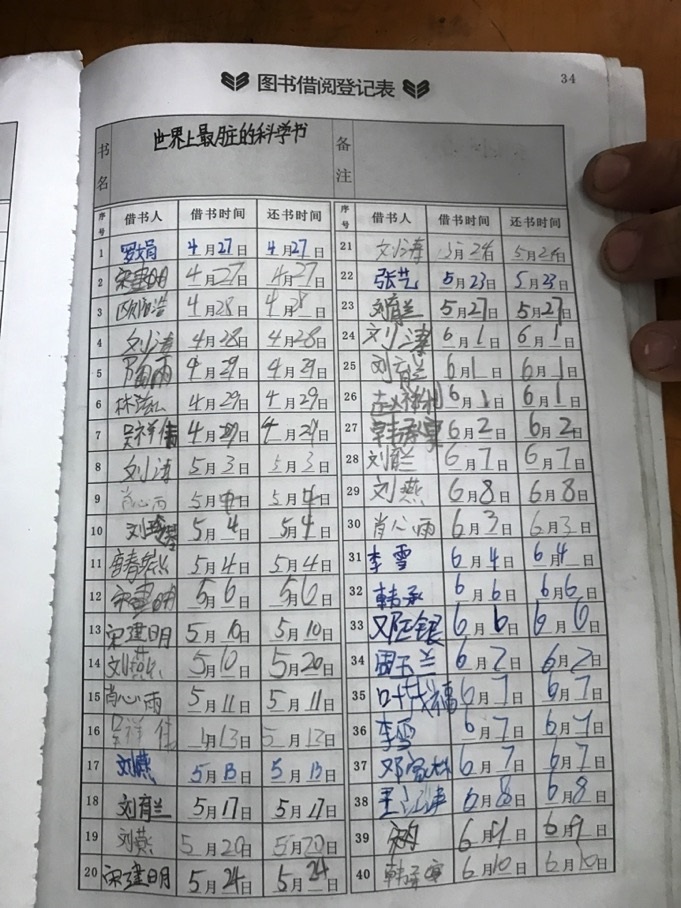 34
图书借阅登记表
书名 世界上最脏的科学书 备注
序号 借书人 借书时间 还书时间 序号 借书人 借书时间 还书时间
1 罗娟 4月27日 4月27日 21 刘海 5月24日
2 宋建明 4月27日 4月27日 22 张艺 5月23日 5月23日
3 4月28日 4月28日 23 刘育兰 5月27日 5月27日
4 刘海 4月28日 4月28日 24 刘海 6月1日 6月1日
5 4月29日 4月29日 25 刘育兰 6月1日 6月1日
6 4月29日 4月29日 26 6月1日 6月1日
7 吴祥倩 4月29日 4月29日 27 6月2日 6月2日
8 刘海 5月3日 5月3日 28 刘育兰 6月7日 6月7日
9 肖心雨 5月4日 5月4日 29 刘燕 6月8日 6月8日
10 5月4日 5月4日 30 肖心雨 6月3日 6月3日
11 5月4日 5月4日 31 李雪 6月4日 6月4日
12 宋建明 5月6日 5月6日 32 韩承 6月6日 6月6日
13 宋建明 5月10日 5月10日 33 6月6日 6月6日
14 刘燕 5月10日 5月20日 34 周玉兰 6月2日 6月2日
15 肖心雨 5月11日 5月11日 35 叶茂福 6月7日 6月7日
16 月13日 5月13日 36 李雪 6月7日 6月7日
17 刘燕 5月13日 5月13日 37 6月7日 6月7日
18 刘育兰 5月17日 5月17日 38 6月8日 6月8日
19 刘燕 5月20日 5月20日 39 6月9日 6月9日
20 宋建明 5月24日 5月24日 40 6月10日 6月10日